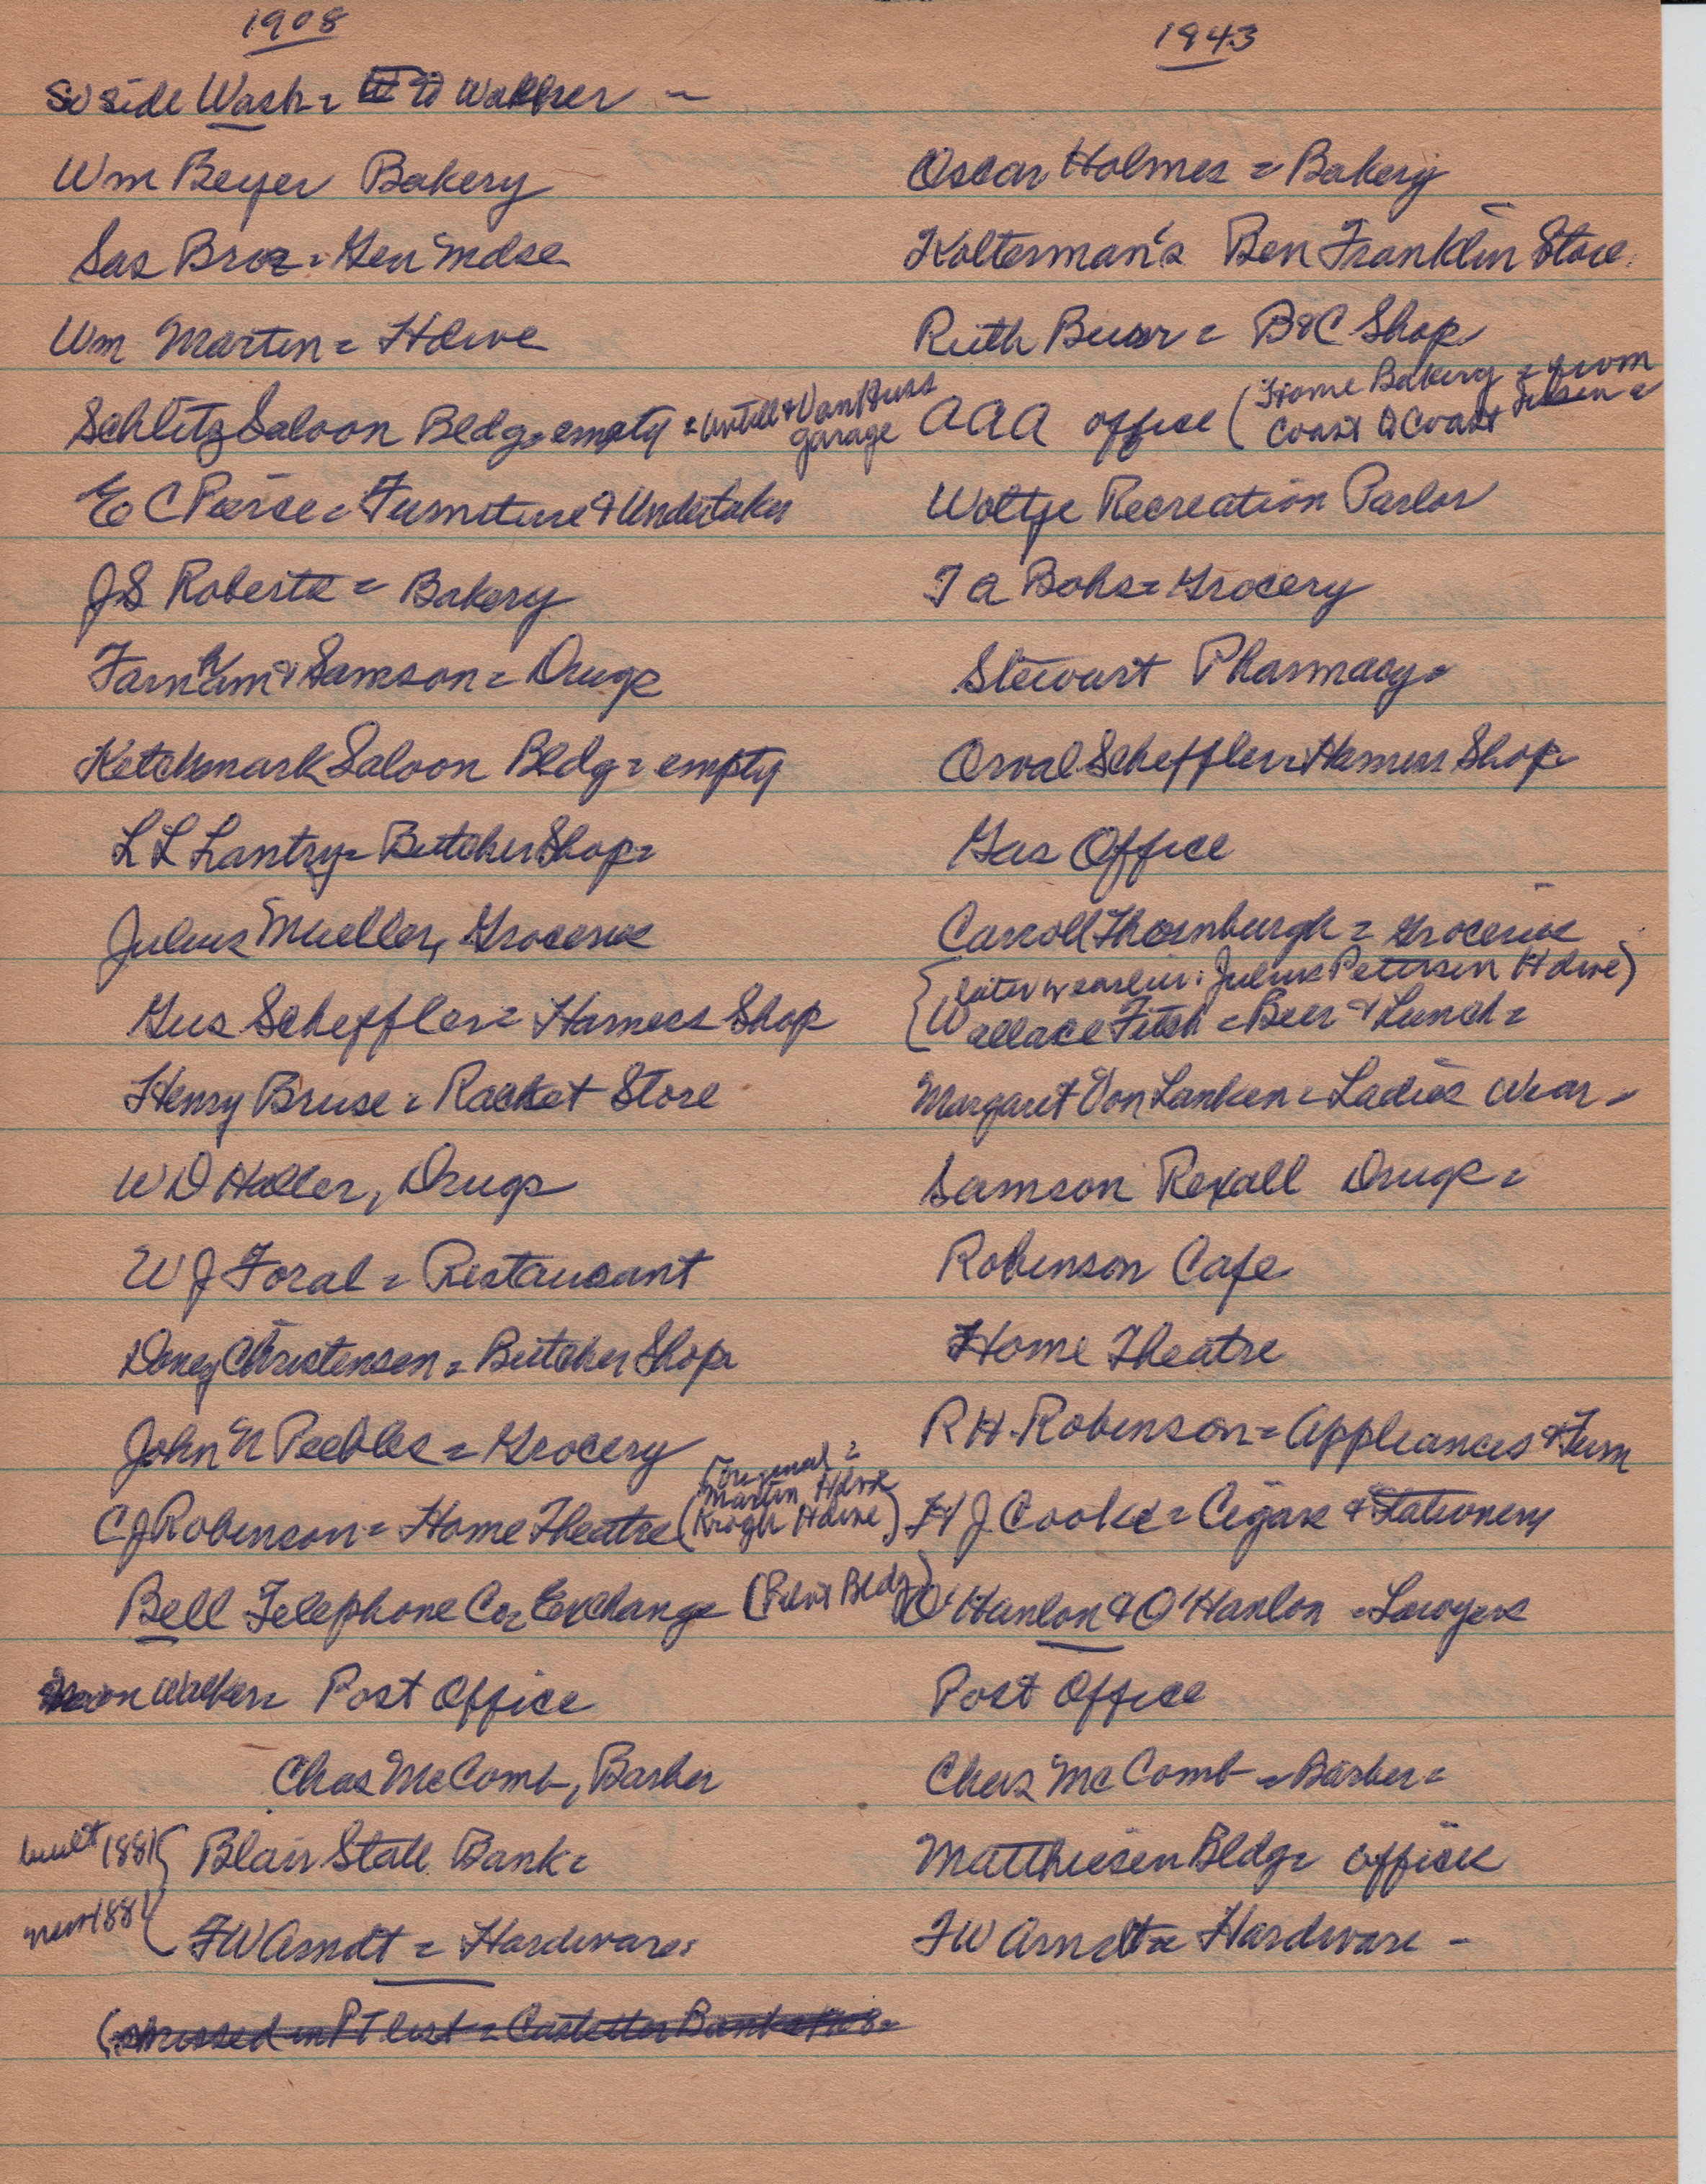 1908 1943
So side Wash = W Walker -
Wm Beyer Bakery Oscar Holmes = Bakery
Sas Bros = Gen Mdse Kolterman's Ben Franklin Store
Wm Marten = Hdwe Ruth Buar = B&C Shop
Schlitz Saloon Bldg = empty = Antill & Van Huss garage AAA office (Home Bakery = from
Coast to Coast
E C Peirse = Furniture & Undertaker Woltje Recreation Parlor
JS Roberts = Bakery T A Bohs = Grocery
Farnham & Samson = Drugs Stewart Pharmacy =
Ketchmark Saloon Bldg = empty Orval Scheffler = Harness Shop
L L Lantry = Butcher Shop = Gas Office
Julius Mueller, Groceries Carroll Thornburgh = Groceries
{later or earlier: Julius Petersen Hdwe)
Gus Scheffler = Harness Shop Wallace Fitch = Beer & Lunch =
Henry Bruse = Racket Store Margaret Von Lanken = Ladies Wear -
W D Haller, Drugs Samson Rexall Drugs =
W J Foral = Restaurant Robinson Cafe
Doney Christensen = Butcher Shop Home Theatre
John N Peebles = Grocery R H. Robinson = Appliances & Furn
(original =
Martin Hdwe
C J Robinson = Home Theatre (Krogh Hdwe) H J Cooke = Cigars & Stationery
Bell Telephone Co = Exchange (Pilot Bldg) O'Hanlon & O'Hanlon = Lawyers
Walker = Post Office Post Office
Chas McComb, Barber Chas McComb = Barber =
built 1881 { Blair State Bank = Matthiesen Bldg = office
next 1881 { FW Arndt = Hardware = FW Arndt = Hardware -
(missed in PT list = Castetter Bank = 1908 =